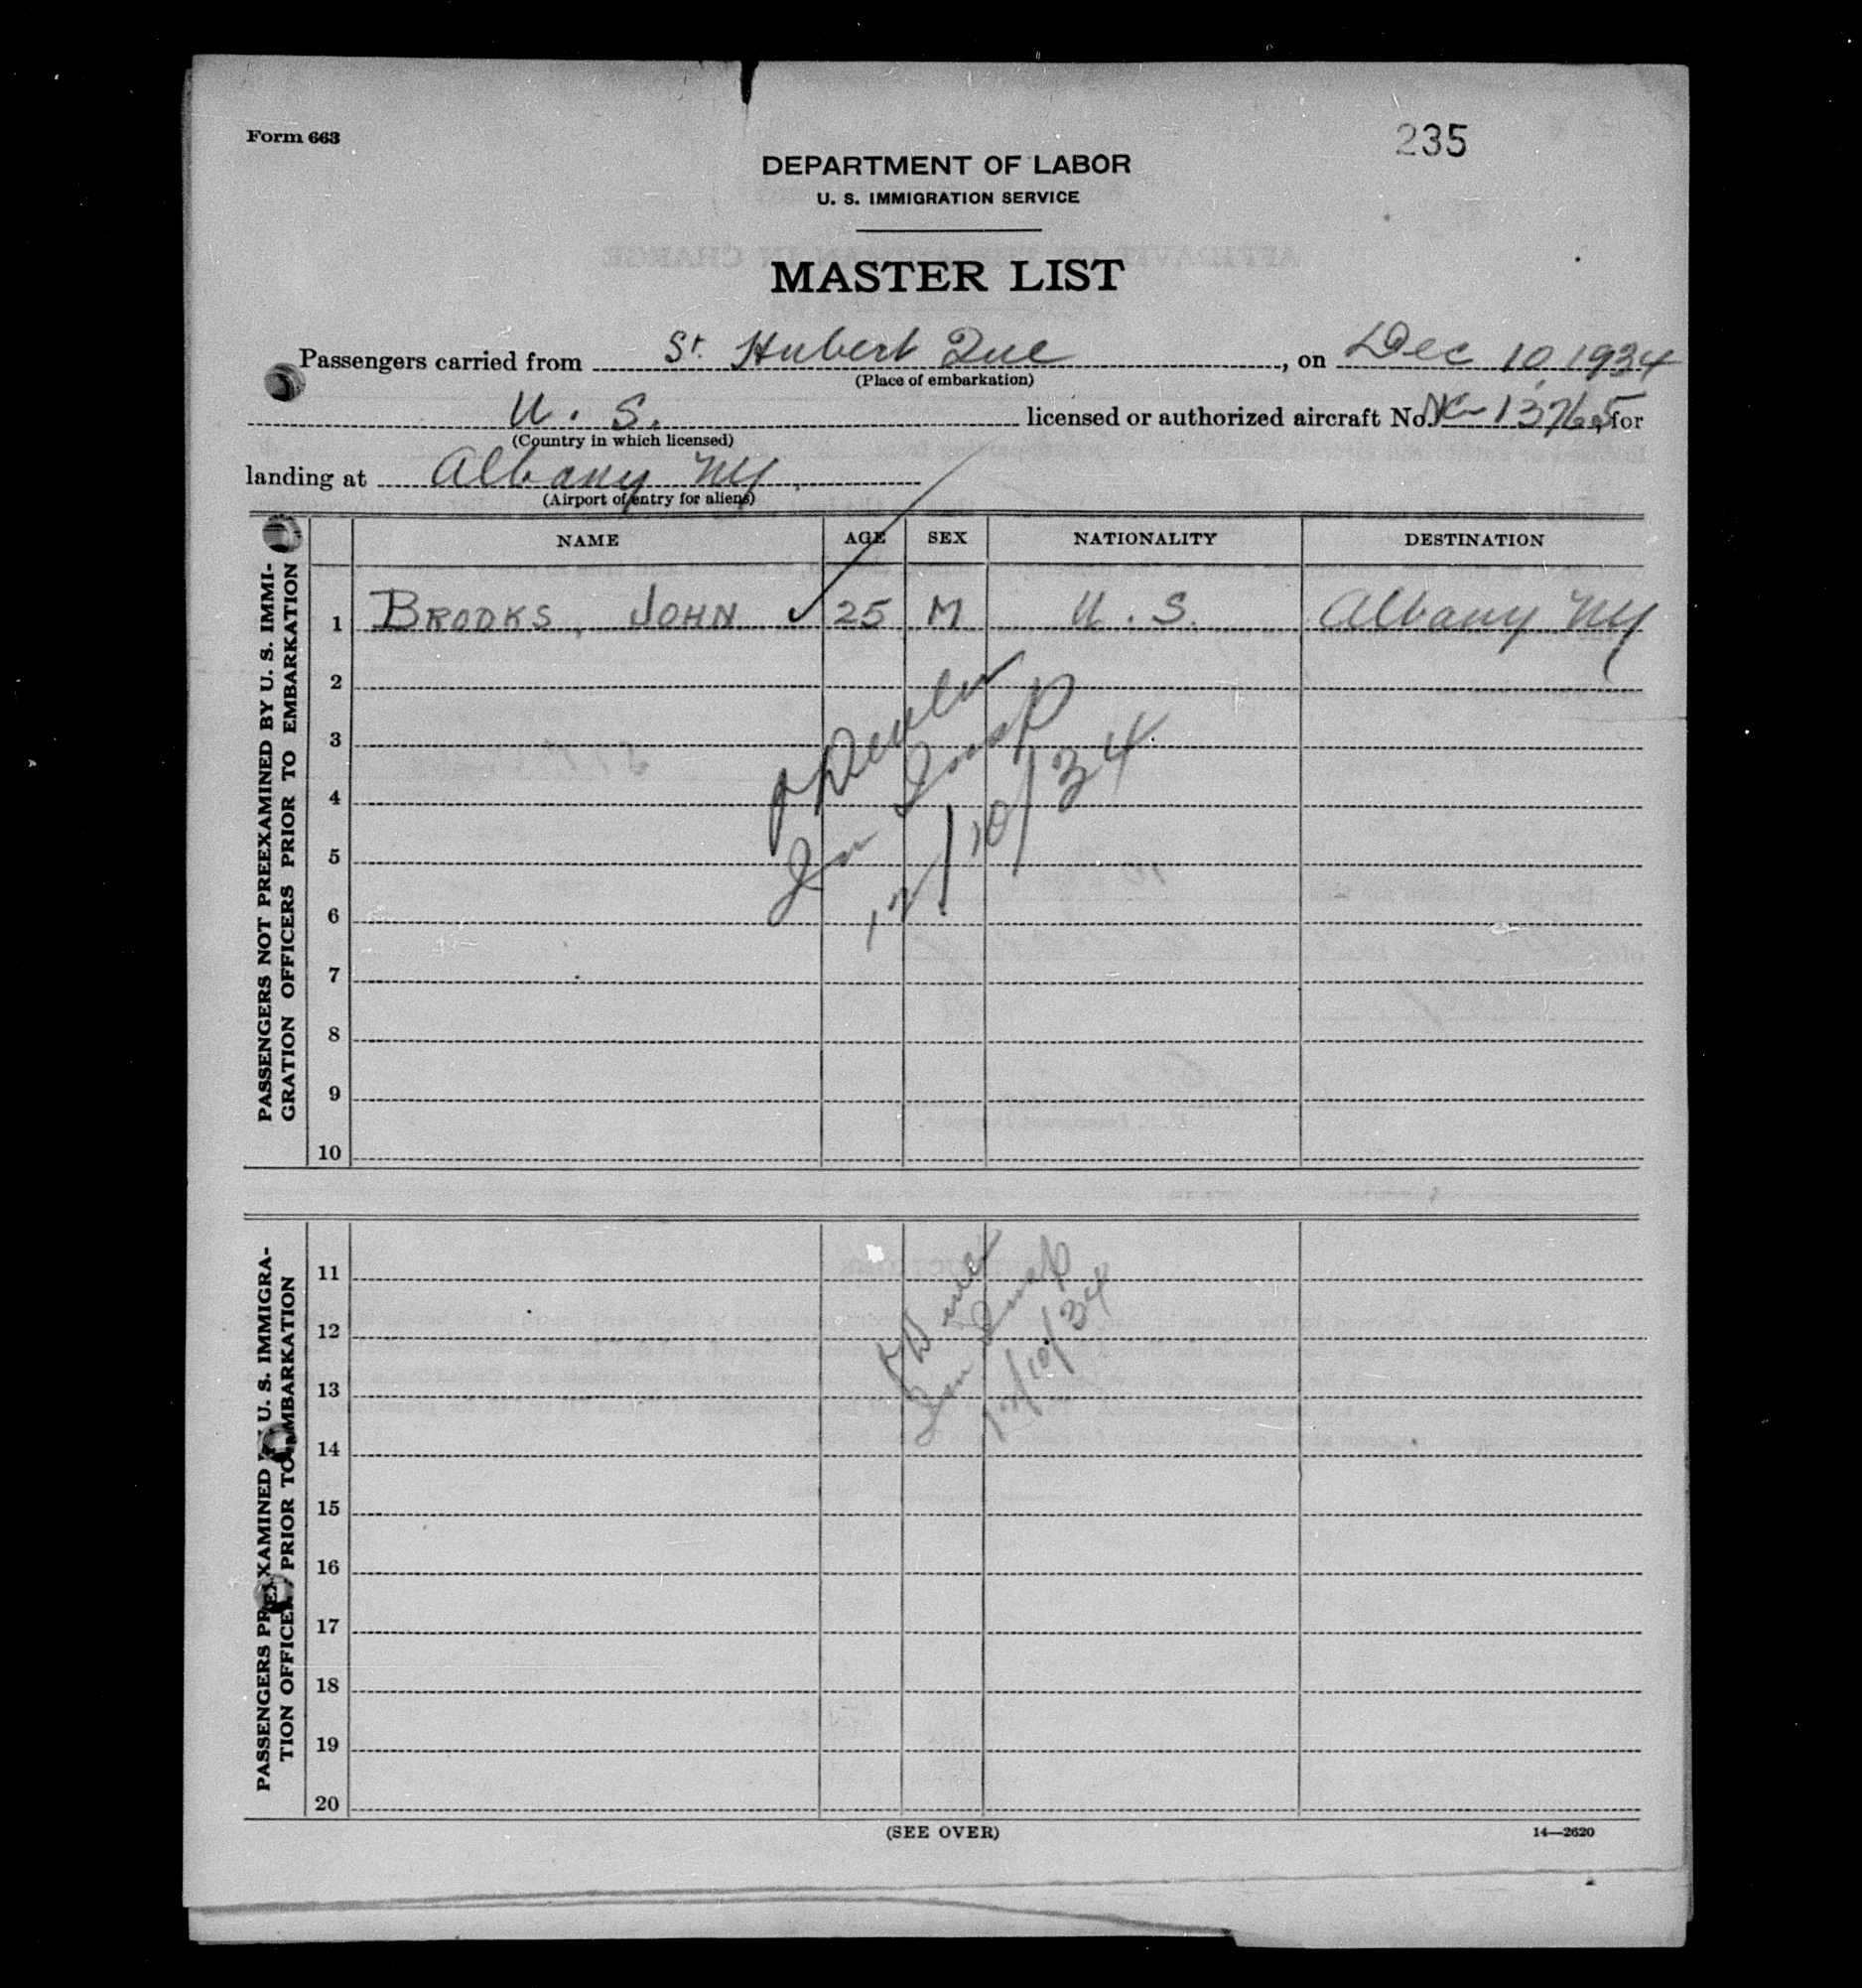 Form 663
235
DEPARTMENT OF LABOR
U. S. IMMIGRATION SERVICE
MASTER LIST
Passengers carried from St. Hubert Que, on Dec 10, 1934
(Place of embarkation)
U. S. licensed or authorized aircraft No. NC-13765, for
(Country in which licensed)
landing at Albany NY.
(Airport of entry for aliens)
NAME AGE SEX NATIONALITY DESTINATION
PASSENGERS NOT PREEXAMINED BY U. S. IMMI-
GRATION OFFICERS PRIOR TO EMBARKATION
1 BROOKS, JOHN 25 M U. S. Albany NY
2
3
4
5
6
7
8
9
10
Imm Insp
12/10/34
PASSENGERS PREEXAMINED BY U. S. IMMIGRA-
TION OFFICERS PRIOR TO EMBARKATION
11
12
13
14
15
16
17
18
19
20
Imm Insp
12/10/34
(SEE OVER)
14—2620